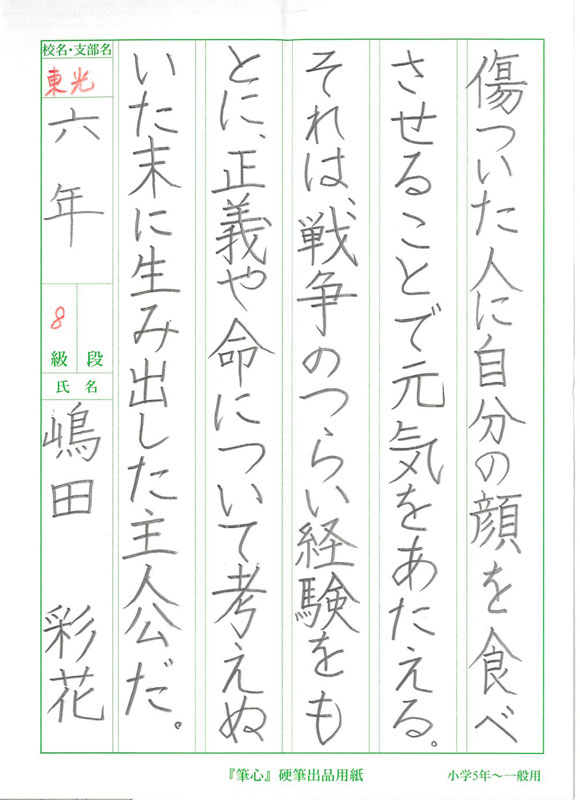 傷ついた人に自分の顔を食べ
させることで元気をあたえる。
それは、戦争のつらい経験をも
とに、正義や命について考えぬ
いた末に生み出した主人公だ。
校名・支部名
東光
六年
8
級 段
氏名
嶋田 彩花
『筆心』硬筆出品用紙
小学5年～一般用